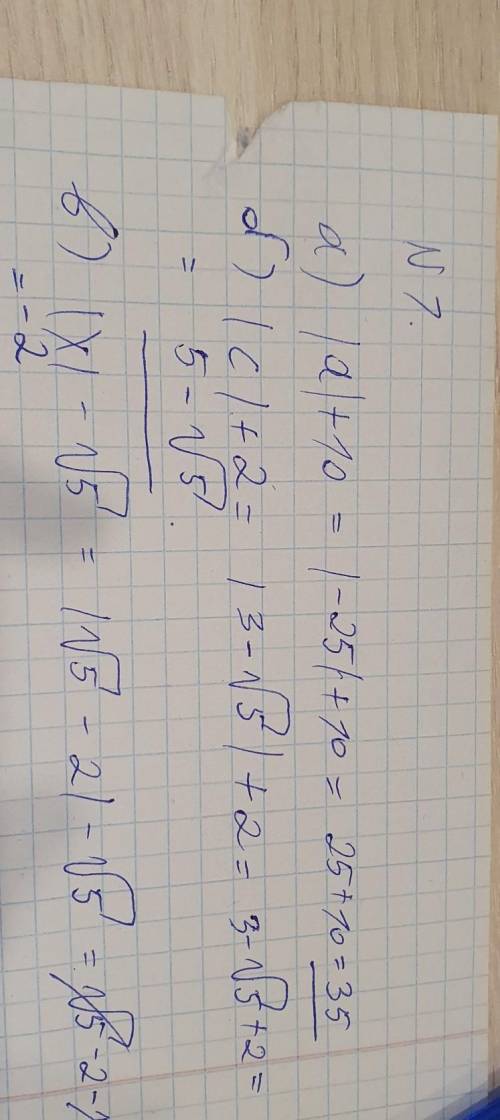 N 7.
а) |a|+10 = |-25|+10 = 25+10=35
б) |c|+2= |3-√5|+2= 3-√5+2=
= 5-√5
в) |x|-√5 = |√5-2|-√5 = √5-2-
= -2